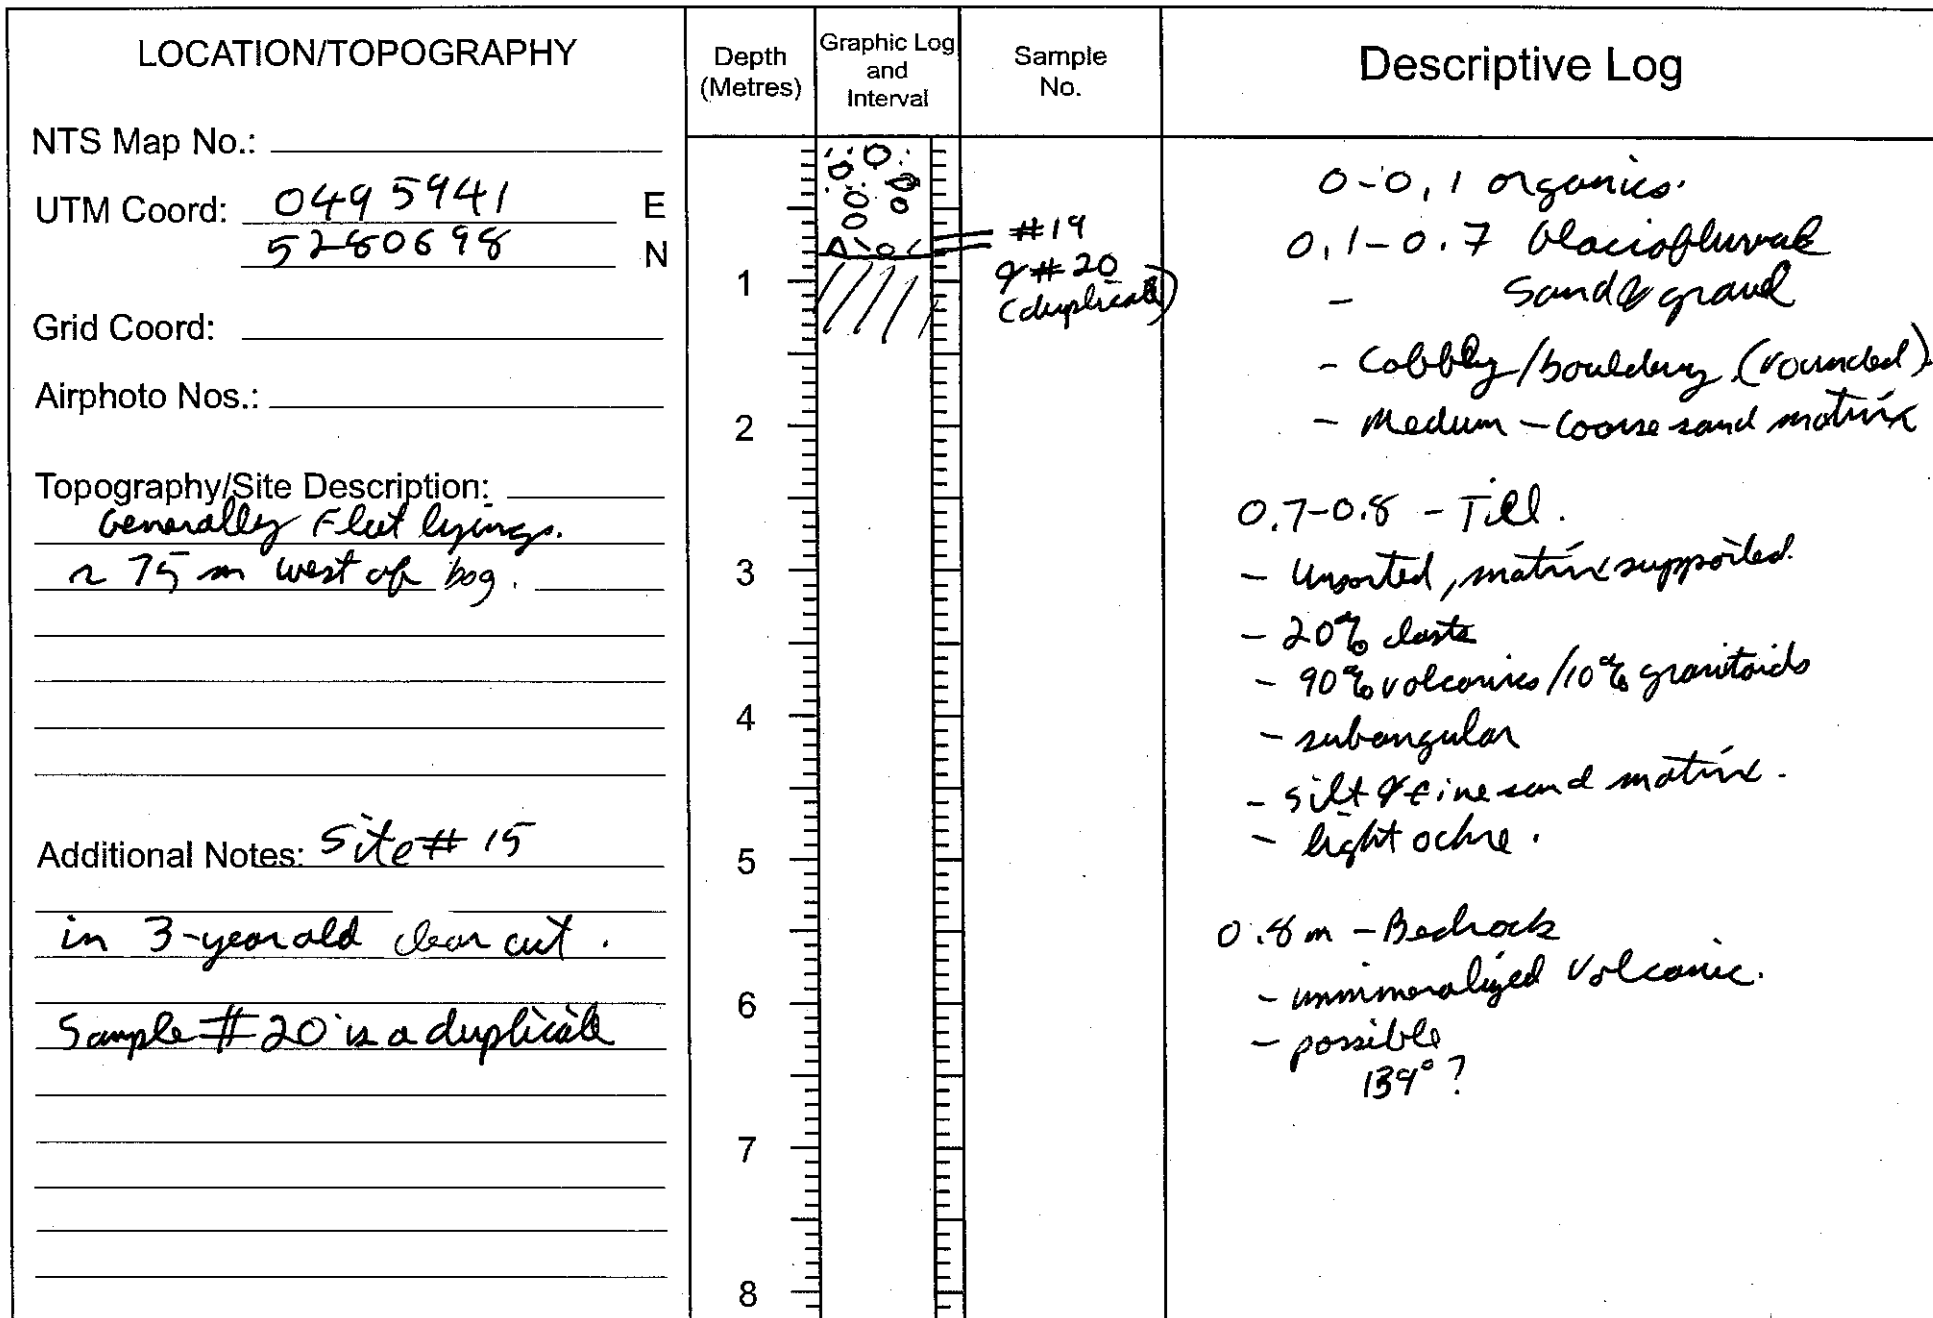 LOCATION/TOPOGRAPHY
NTS Map No.:
UTM Coord: 0495941 E
5280698 N
Grid Coord:
Airphoto Nos.:
Topography/Site Description:
Generally Flat lying.
~ 75 m west of bog.
Additional Notes: Site # 15
in 3-year old clear cut.
Sample # 20 is a duplicate
Depth
(Metres)
1
2
3
4
5
6
7
8
Graphic Log
and
Interval
Sample
No.
#19
& # 20
(duplicate)
Descriptive Log
0-0,1 organics.
0.1-0.7 Glaciofluvial
- Sand & gravel
- Cobbly/bouldery (rounded)
- Medium - Coarse sand matrix
0.7-0.8 - Till.
- Unsorted, matrix supported.
- 20% clasts
- 90% volcanics/10% granitoids
- subangular
- silt & fine sand matrix.
- light ochre.
0.8m - Bedrock
- unmineralized volcanic.
- possible
139°?